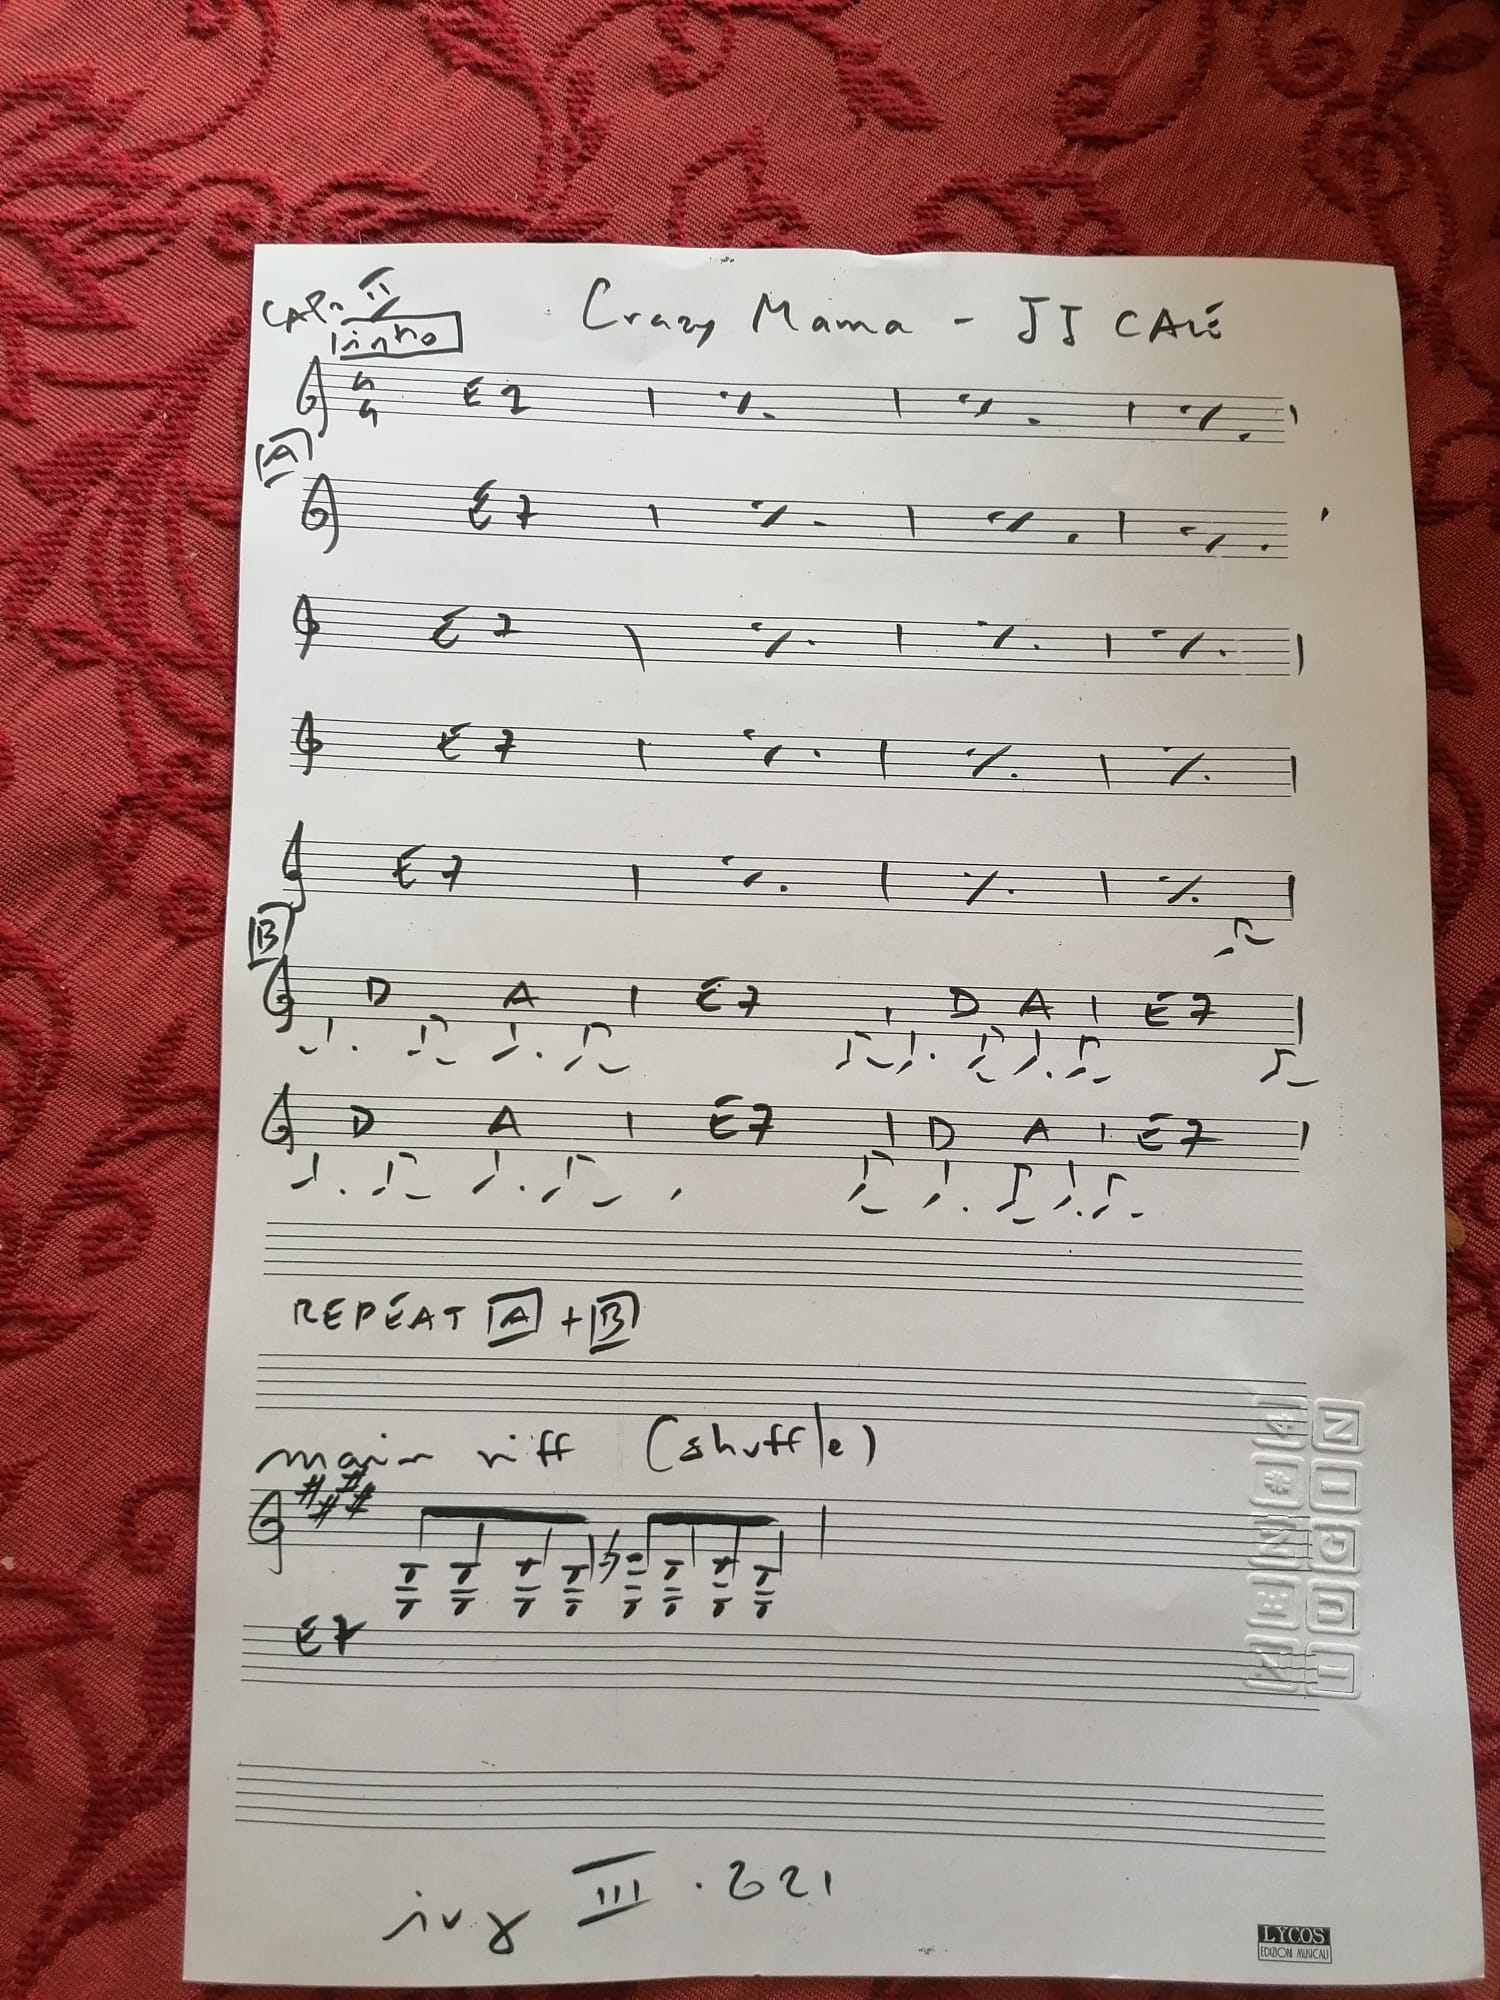 Crazy Mama - JJ CALE
E7 | ٪ | ٪ | ٪ |
A
E7 | ٪ | ٪ | ٪
E7 | ٪ | ٪ | ٪ |
E7 | ٪ | ٪ | ٪ |
E7 | ٪ | ٪ | ٪ |
B
D A | E7 | D A | E7 |
D A | E7 | D A | E7 |
REPEAT A + B
main riff (shuffle)
E7
III . 2021
LYCOS
EDIZIONI MUSICALI